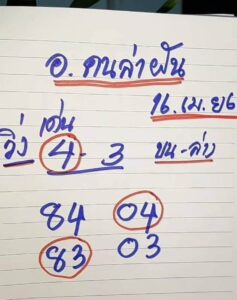 อ.คนล่าฝัน
16.เม.ย6
เด่น
วิ่ง 4-3 บน-ล่าง
84 04
83 03